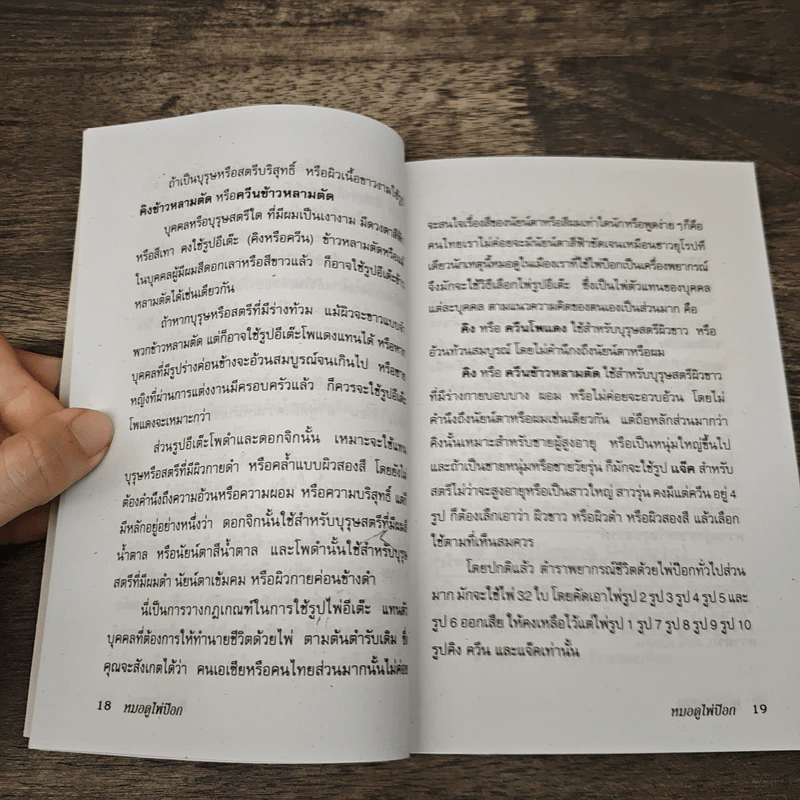 ถ้าเป็นบุรุษหรือสตรีบริสุทธิ์ หรือผิวเนื้อขาวงามใช้รูป
คิงข้าวหลามตัด หรือควีนข้าวหลามตัด
บุคคลหรือบุรุษสตรีใด ที่มีผมเป็นเงางาม มีดวงตาสีฟ้า
หรือสีเทา คงใช้รูปอีเต๊ะ (คิงหรือควีน) ข้าวหลามตัดหรือแม้
ในบุคคลผู้มีผมสีดอกเลาหรือสีขาวแล้ว ก็อาจใช้รูปอีเต๊ะข้าว
หลามตัดได้เช่นเดียวกัน
ถ้าหากบุรุษหรือสตรีที่มีร่างท้วม แม้ผิวจะขาวแบบ
พวกข้าวหลามตัด แต่ก็อาจใช้รูปอีเต๊ะโพแดงแทนได้ หรือหาก
บุคคลที่มีรูปร่างค่อนข้างจะอ้วนสมบูรณ์จนเกินไป หรือชาย
หญิงที่ผ่านการแต่งงานมีครอบครัวแล้ว ก็ควรจะใช้รูปอีเต๊ะ
โพแดงจะเหมาะกว่า
ส่วนรูปอีเต๊ะโพดำและดอกจิกนั้น เหมาะจะใช้แทน
บุรุษหรือสตรีที่มีผิวกายดำ หรือคล้ำแบบผิวสองสี โดยยังไม่
ต้องคำนึงถึงความอ้วนหรือความผอม หรือความบริสุทธิ์ แต่
มีหลักอยู่อย่างหนึ่งว่า ดอกจิกนั้นใช้สำหรับบุรุษสตรีที่มีผมสี
น้ำตาล หรือนัยน์ตาสีน้ำตาล และโพดำนั้นใช้สำหรับบุรุษ
สตรีที่มีผมดำ นัยน์ตาเข้มคม หรือผิวกายค่อนข้างดำ
นี่เป็นการวางกฎเกณฑ์ในการใช้รูปไพ่อีเต๊ะ แทนตัว
บุคคลที่ต้องการให้ทำนายชีวิตด้วยไพ่ ตามต้นตำรับเดิม ซึ่ง
คุณจะสังเกตได้ว่า คนเอเชียหรือคนไทยส่วนมากนั้นไม่ค่อย
18 หมอดูไพ่ป๊อก
จะสนใจเรื่องสีของนัยน์ตาหรือสีผมเท่าใดนักหรือพูดง่าย ๆ ก็คือ
คนไทยเราไม่ค่อยจะมีนัยน์ตาสีฟ้าชัดเจนเหมือนชาวยุโรปที
เดียวนักเหตุนี้หมอดูในเมืองเราที่ใช้ไพ่ป๊อกเป็นเครื่องพยากรณ์
จึงมักจะใช้วิธีเลือกไพ่รูปอีเต๊ะ ซึ่งเป็นไพ่ตัวแทนของบุคคล
แต่ละบุคคล ตามแนวความคิดของตนเองเป็นส่วนมาก คือ
คิง หรือ ควีนโพแดง ใช้สำหรับบุรุษสตรีผิวขาว หรือ
อ้วนท้วนสมบูรณ์ โดยไม่คำนึงถึงนัยน์ตาหรือผม
คิง หรือ ควีนข้าวหลามตัด ใช้สำหรับบุรุษสตรีผิวขาว
ที่มีร่างกายบอบบาง ผอม หรือไม่ค่อยจะอวบอ้วน โดยไม่
คำนึงถึงนัยน์ตาหรือผมเช่นเดียวกัน แต่ถือหลักส่วนมากว่า
คิงนั้นเหมาะสำหรับชายผู้สูงอายุ หรือเป็นหนุ่มใหญ่ขึ้นไป
และถ้าเป็นชายหนุ่มหรือชายวัยรุ่น ก็มักจะใช้รูป แจ็ค สำหรับ
สตรีไม่ว่าจะสูงอายุหรือเป็นสาวใหญ่ สาวรุ่น คงมีแต่ควีน อยู่ 4
รูป ก็ต้องเลือกเอาว่า ผิวขาว หรือผิวดำ หรือผิวสองสี แล้วเลือก
ใช้ตามที่เห็นสมควร
โดยปกติแล้ว ตำราพยากรณ์ชีวิตด้วยไพ่ป๊อกทั่วไปส่วน
มาก มักจะใช้ไพ่ 32 ใบ โดยคัดเอาไพ่รูป 2 รูป 3 รูป 4 รูป 5 และ
รูป 6 ออกเสีย ให้คงเหลือไว้แต่ไพ่รูป 1 รูป 7 รูป 8 รูป 9 รูป 10
รูปคิง ควีน และแจ็คเท่านั้น
หมอดูไพ่ป๊อก 19